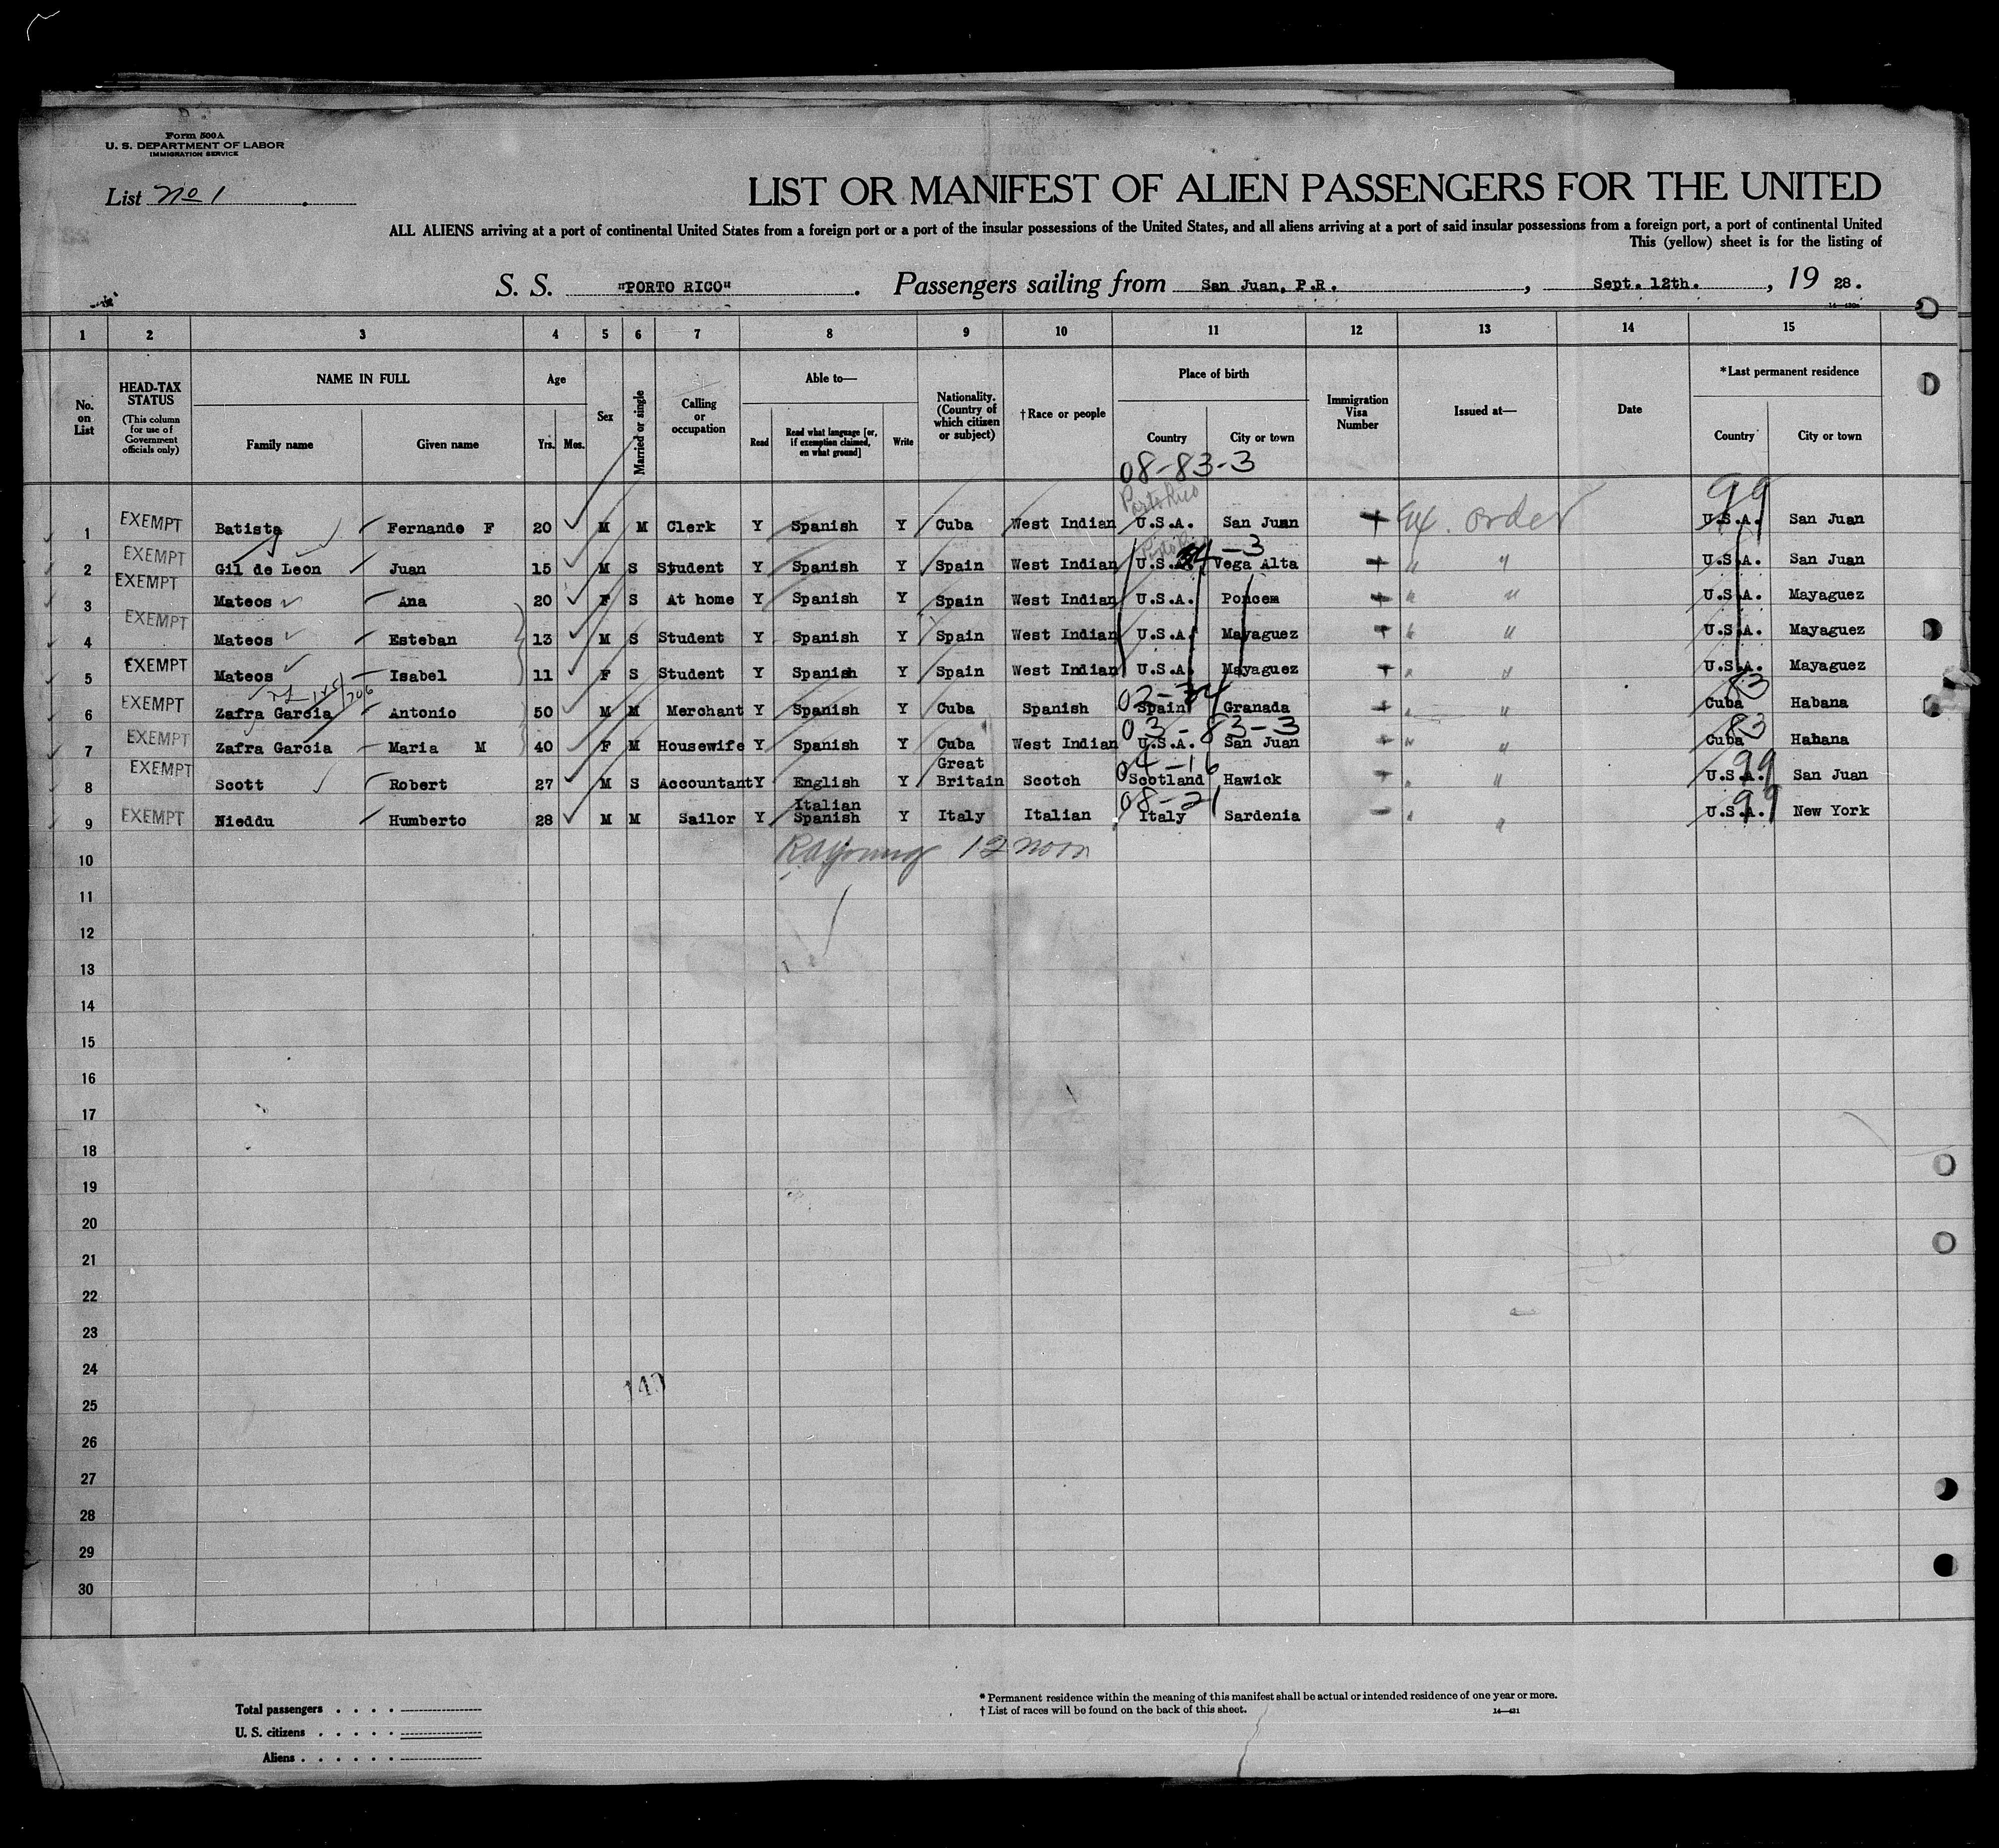 Form 500A
U. S. DEPARTMENT OF LABOR
IMMIGRATION SERVICE
List No 1
LIST OR MANIFEST OF ALIEN PASSENGERS FOR THE UNITED
ALL ALIENS arriving at a port of continental United States from a foreign port or a port of the insular possessions of the United States, and all aliens arriving at a port of said insular possessions from a foreign port, a port of continental United
This (yellow) sheet is for the listing of
S. S. "PORTO RICO" . Passengers sailing from San Juan, P.R. , Sept. 12th. , 19 28.
1 2 3 4 5 6 7 8 9 10 11 12 13 14 15
No. on List
HEAD-TAX STATUS
(This column for use of Government officials only)
NAME IN FULL
Family name Given name
Age
Yrs. Mos.
Sex
Married or single
Calling or occupation
Able to—
Read Read what language [or, if exemption claimed, on what ground] Write
Nationality. (Country of which citizen or subject)
†Race or people
Place of birth
Country City or town
Immigration Visa Number
Issued at—
Date
*Last permanent residence
Country City or town
08-83-3
Porto Rico 99
1 EXEMPT Batista Fernande F 20 M M Clerk Y Spanish Y Cuba West Indian U.S.A. San Juan Ex. order U.S.A. San Juan
-3
2 EXEMPT Gil de Leon Juan 15 M S Student Y Spanish Y Spain West Indian U.S.A. Vega Alta " " U.S.A. San Juan
3 EXEMPT Mateos Ana 20 F S At home Y Spanish Y Spain West Indian U.S.A. Poncem " " U.S.A. Mayaguez
4 EXEMPT Mateos Esteban 13 M S Student Y Spanish Y Spain West Indian U.S.A. Mayaguez " " U.S.A. Mayaguez
5 EXEMPT Mateos Isabel 11 F S Student Y Spanish Y Spain West Indian U.S.A. Mayaguez " " U.S.A. Mayaguez
03-34 83
6 EXEMPT Zafra Garcia Antonio 50 M M Merchant Y Spanish Y Cuba Spanish Spain Granada " " Cuba Habana
03-83-3 83
7 EXEMPT Zafra Garcia Maria M 40 F M Housewife Y Spanish Y Cuba West Indian U.S.A. San Juan " " Cuba Habana
04-16 99
8 EXEMPT Scott Robert 27 M S Accountant Y English Y Great Britain Scotch Scotland Hawick " " U.S.A. San Juan
08-21 99
9 EXEMPT Nieddu Humberto 28 M M Sailor Y Italian Spanish Y Italy Italian Italy Sardenia " " U.S.A. New York
12 noon
10
11
12
13
14
15
16
17
18
19
20
21
22
23
24
25
26
27
28
29
30
Total passengers . . . .
U. S. citizens . . . . .
Aliens . . . . . .
* Permanent residence within the meaning of this manifest shall be actual or intended residence of one year or more.
† List of races will be found on the back of this sheet.